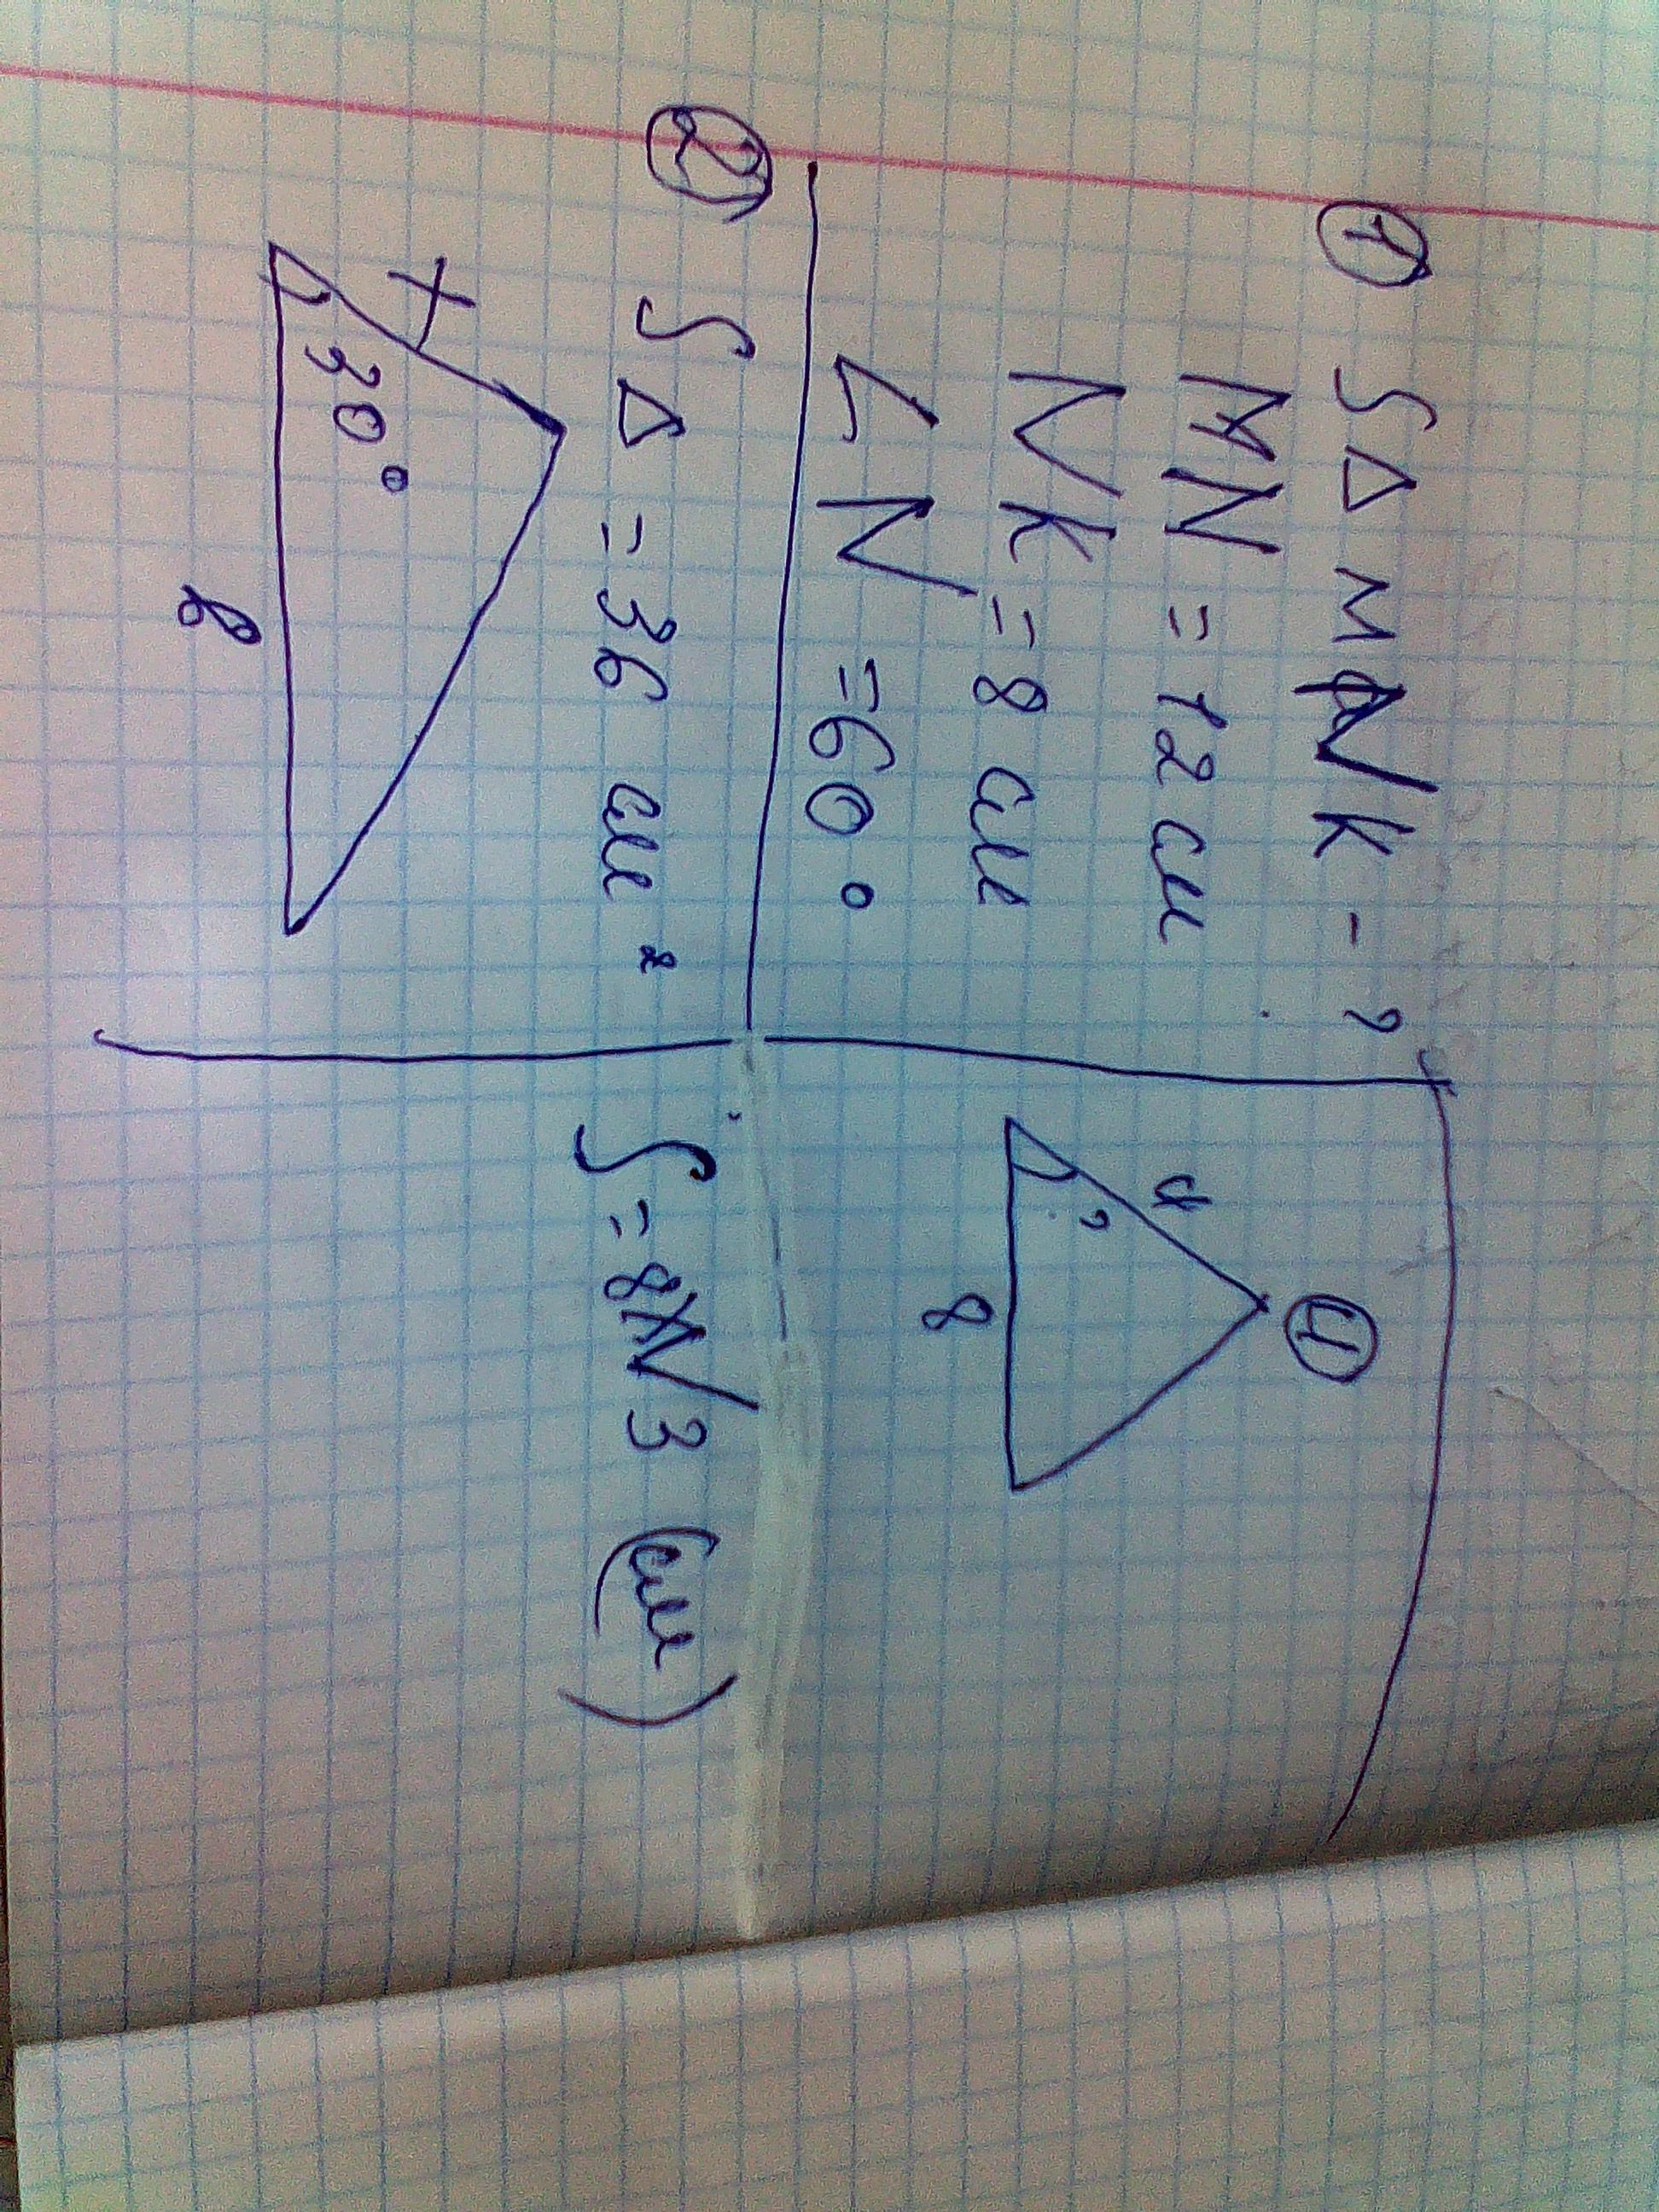 ① S△MNK-?
MN = 12 см
NK = 8 см
∠N = 60°
② S△ = 36 см²
x
30°
④
4
?
8
S = 8√3 (см)